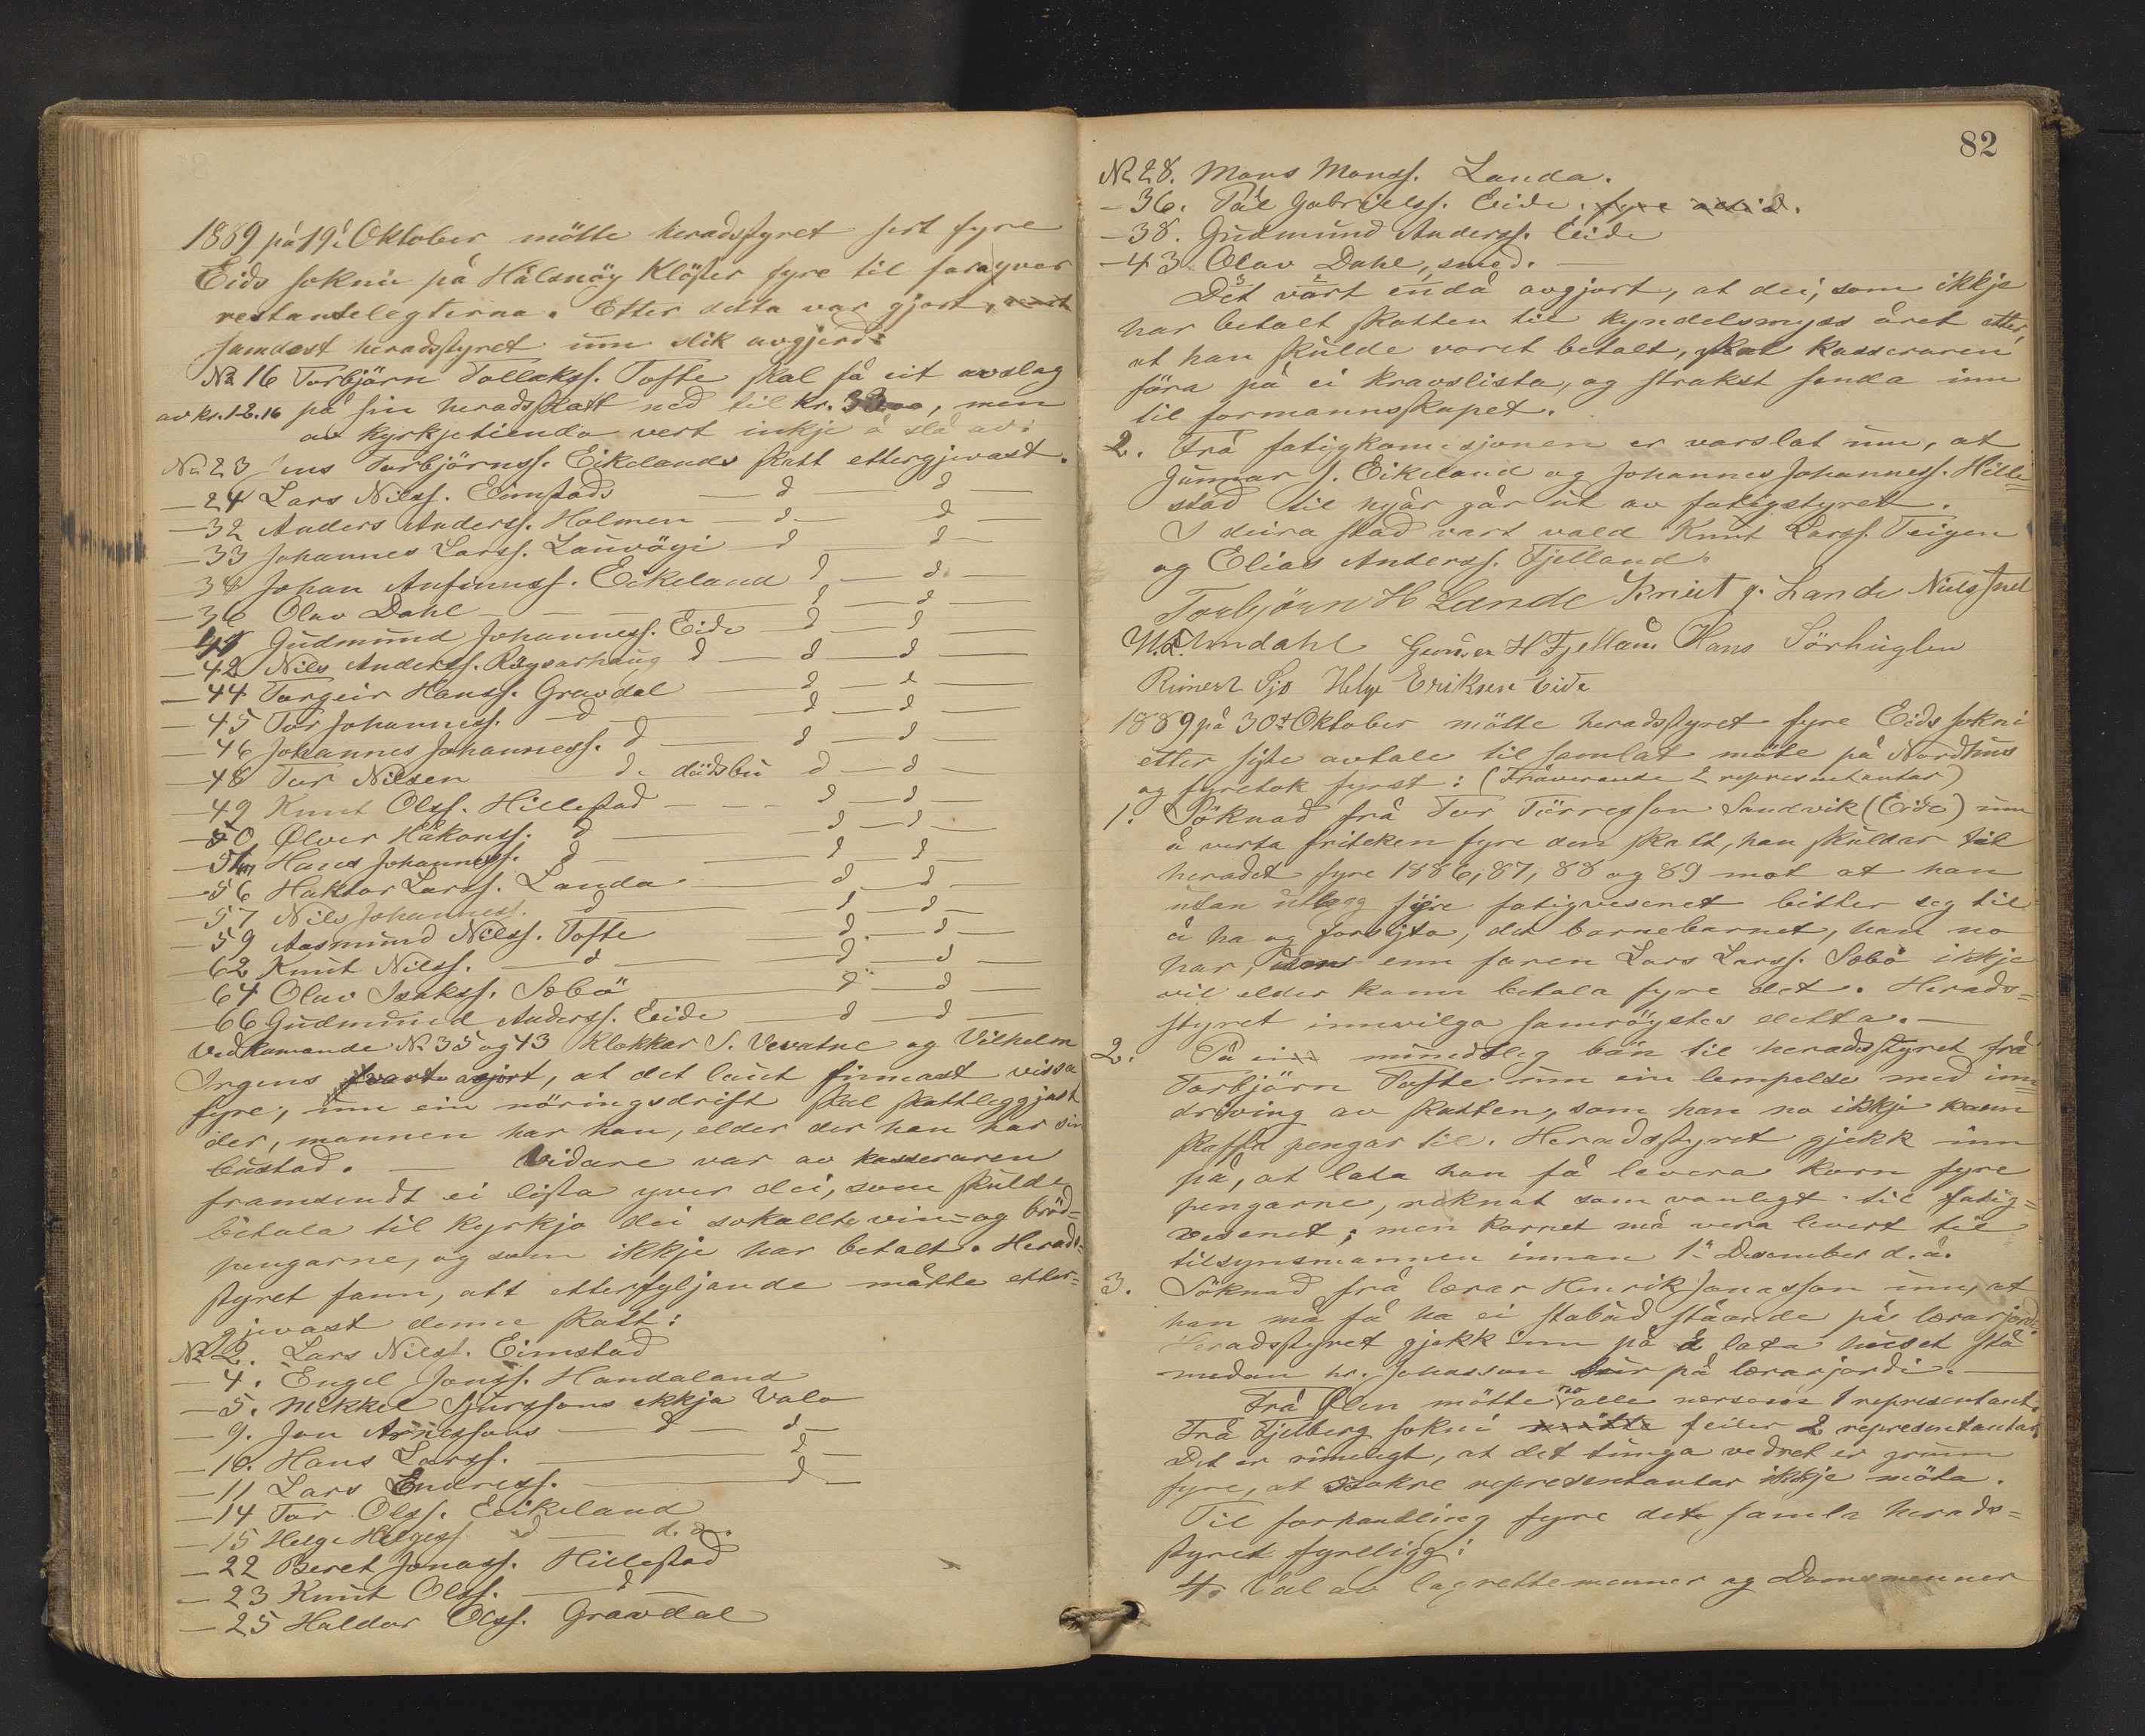 1889 på 19de Oktober mötte heradsstyret sert fyre
Eids sokni på Halsnöy Klöster fyre til fara yver
restanselegterna. Etter detta var gjort,
samdæst heradsstyret um slik avgjerd:
No 16 Torbjörn Tollakss. Tofte skal få eit avslag
av kr. 12.16 på sin heradsskatt ned til kr. , men
av kyrkjetienda vert inkje å slå av.
No 23 Jens Torbjörnss. Eikelands skatt ettergjevast.
— 24 Lars Nilss. Eimstads — d — d —
— 32 Anders Anderss. Holmen — d — d —
— 33 Johannes Larss. Lauvöyi — d — d —
34 Johan Anfinnss. Eikeland d — d —
— 36 Olav Dahl — d — d —
— 41 Gudmund Johanness. Eide — d — d —
— 42 Nils Anderss. Röysarhaug d — d — d —
— 44 Torgeir Hanss. Gravdal d — d —
— 45 Tor Johanness. — d — d — d —
— 46 Johannes Johanness. d — d — d —
— 48 Tor Nilsen — d. dödsbu d — d —
— 49 Knut Olss. Hillestad — d — d —
— 50 Ölver Håkonss. d — d — d —
— 54 Hans Johanness. d — d — d —
— 56 Haktor Larss. Landa — d — d —
— 57 Nils Johanness. d — d — d —
— 59 Aasmund Nilss. Tofte — d — d —
— 62 Knut Nilss. — d — d — d —
— 64 Olav Isakss. Sæbö — d — d —
— 66 Gudmund Anderss. Eide — d — d —
Vedkomande No 35 og 43 Klokkar S. Vevatne og Vilhelm
Irgens vart avgjort, at det laut finnast vissa
fyre, um ein næringsdrift skal skattleggjast
der, mannen har han, elder der han har sin
bustad. — Vidare var av kasseraren
framsendt ei lista yver dei, som skulde
betala til kyrkja dei sokallte vin- og bröd=
pengarne, og som ikkje har betalt. Herads=
styret fann, att etterfyljande måtte etter=
gjevast denne skatt:
No 2. Lars Nilss. Eimstad
— 4. Engel Jonss. Handaland
— 5. Mikkel Sjurssons ekkja Valo
— 9. Jon Arnessons — d — d —
— 10. Hans Larss. — d —
— 11 Lars Endress. — d —
— 14 Tor Olss. Eikeland
— 15 Helge Helgess. d — d. d.
— 22 Beret Jonass. Hillestad
— 23 Knut Olss. — d —
— 25 Haldor Olss. Gravdal
82
No 28. Mons Monss. Landa.
— 36. Pål Gabrielss. Eide.
— 38. Gudmund Anderss. Eide
— 43 Olav Dahl, smed. —
Det vart endå avgjort, at dei, som ikkje
har betalt skatten til kyndelsmyss året etter,
at han skulde voret betalt, skal kasseraren
föra på ei kravslista, og strakst senda inn
til formannskapet.
2. Frå fatigkomisjonen er varslat um, at
Gunnar J. Eikeland og Johannes Johanness. Hille=
stad til nyår går ut av fatigstyret.
I deira stad vart vald Knut Larss. Teigen
og Elias Anderss. Fjelland.
Torbjörn H Lande Knut J. Lande Nils
Undahl Gunnar H Fjelland Hans Sörhuglen
Rimert Sjo Helge Eriksen Eide
1889 på 30te Oktober mötte heradsstyret fyre Eids sokni
etter siste avtale til samlat möte på Nordhus
og fyretok fyrst: (Fråverande 2 representantar)
1. Söknad frå Tor Törresson Sandvik (Eide) um
å verta friteken fyre den skatt, han skuldar til
heradet fyre 1886, 87, 88 og 89 mot at han
utan utlegg fyre fatigvesenet bitter seg til
å ha og forsyta, det barnebarnet, han no
har, enn faren Lars Larss. Sæbö ikkje
vil elder kann betala fyre det. Herads=
styret innvilga samröystes detta. —
2. På mundtleg bön til heradsstyret frå
Torbjörn Tofte um ein lempelse med inn=
driving av skatten, som han no ikkje kann
skaffa pengar til. Heradsstyret gjekk inn
på, at lata han få levera korn fyre
pengarne, reknat som vanlegt til fatig=
vesenet; men kornet må vera levert til
tilsynsmannen innan 1ste Desember d. å.
3. Söknad frå lærar Henrik Jonasson um, at
han må få ha ei stabud ståande på lærarjordi.
Heradsstyret gjekk inn på å lata huset stå
medan hr. Jonasson bur på lærarjordi. —
Frå Ölen mötte no alle nærsom 1 representant.
Frå Fjelberg sokni feiler 2 representantar.
Det er rimelegt, at det tunga vedret er grunn
fyre, at sokre representantar ikkje möta.
Til forhandling fyre det samla herads=
styret fyreligg:
4. Val av lagrettemenner og Domsmenner